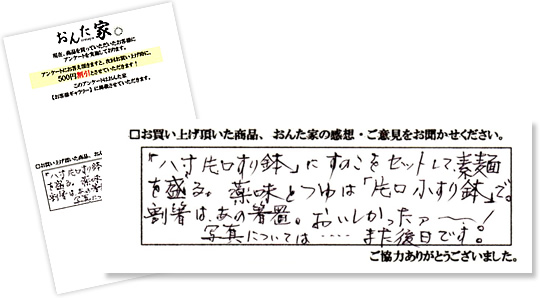 おんた家。
現在、商品を買っていただいたお客様に
アンケートを実施しております。
アンケートにお答え頂きますと、次回お買い上げ時に、
500円割引とさせていただきます！
このアンケートはおんた家
【お客様ギャラリー】に掲載させていただきます。
□お買い上げ頂いた商品、おん
「八寸片口すり鉢」に
を盛る。薬味
割箸は、あの
写真に
□お買い上げ頂いた商品、おんた家の感想・ご意見をお聞かせください。
「八寸片口すり鉢」にすのこをセットして、素麺
を盛る。薬味とつゆは「片口小すり鉢」で。
割箸は、あの箸置。おいしかったァ〜〜！
写真については‥‥‥また後日です。
ご協力ありがとうございました。